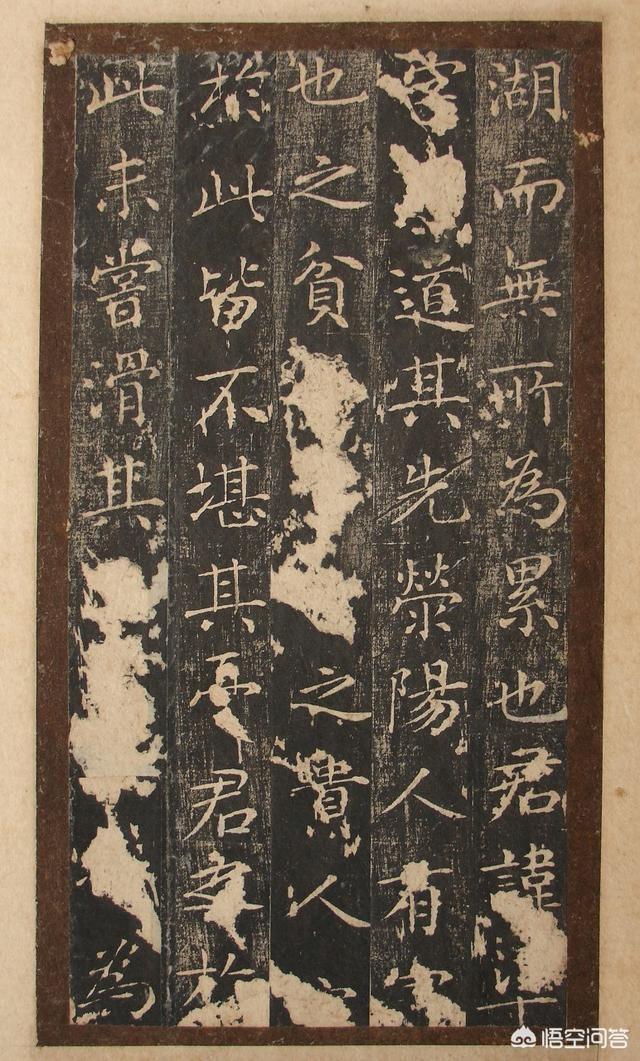 湖而無所為累也君諱
字 道其先滎陽人有
也之貧 之費人
於此皆不堪其憂君 於
此未嘗滑其 為
悟空问答